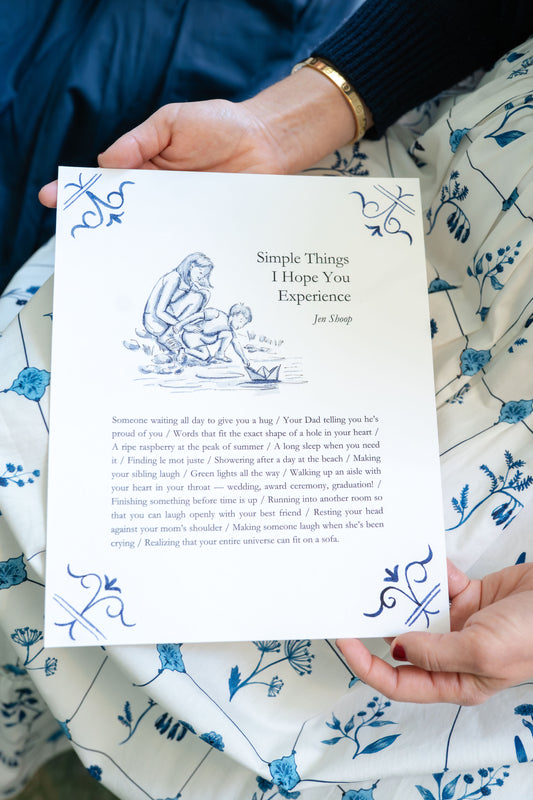 Simple Things
I Hope You
Experience
Jen Shoop
Someone waiting all day to give you a hug / Your Dad telling you he's
proud of you / Words that fit the exact shape of a hole in your heart /
A ripe raspberry at the peak of summer / A long sleep when you need
it / Finding le mot juste / Showering after a day at the beach / Making
your sibling laugh / Green lights all the way / Walking up an aisle with
your heart in your throat — wedding, award ceremony, graduation! /
Finishing something before time is up / Running into another room so
that you can laugh openly with your best friend / Resting your head
against your mom's shoulder / Making someone laugh when she's been
crying / Realizing that your entire universe can fit on a sofa.